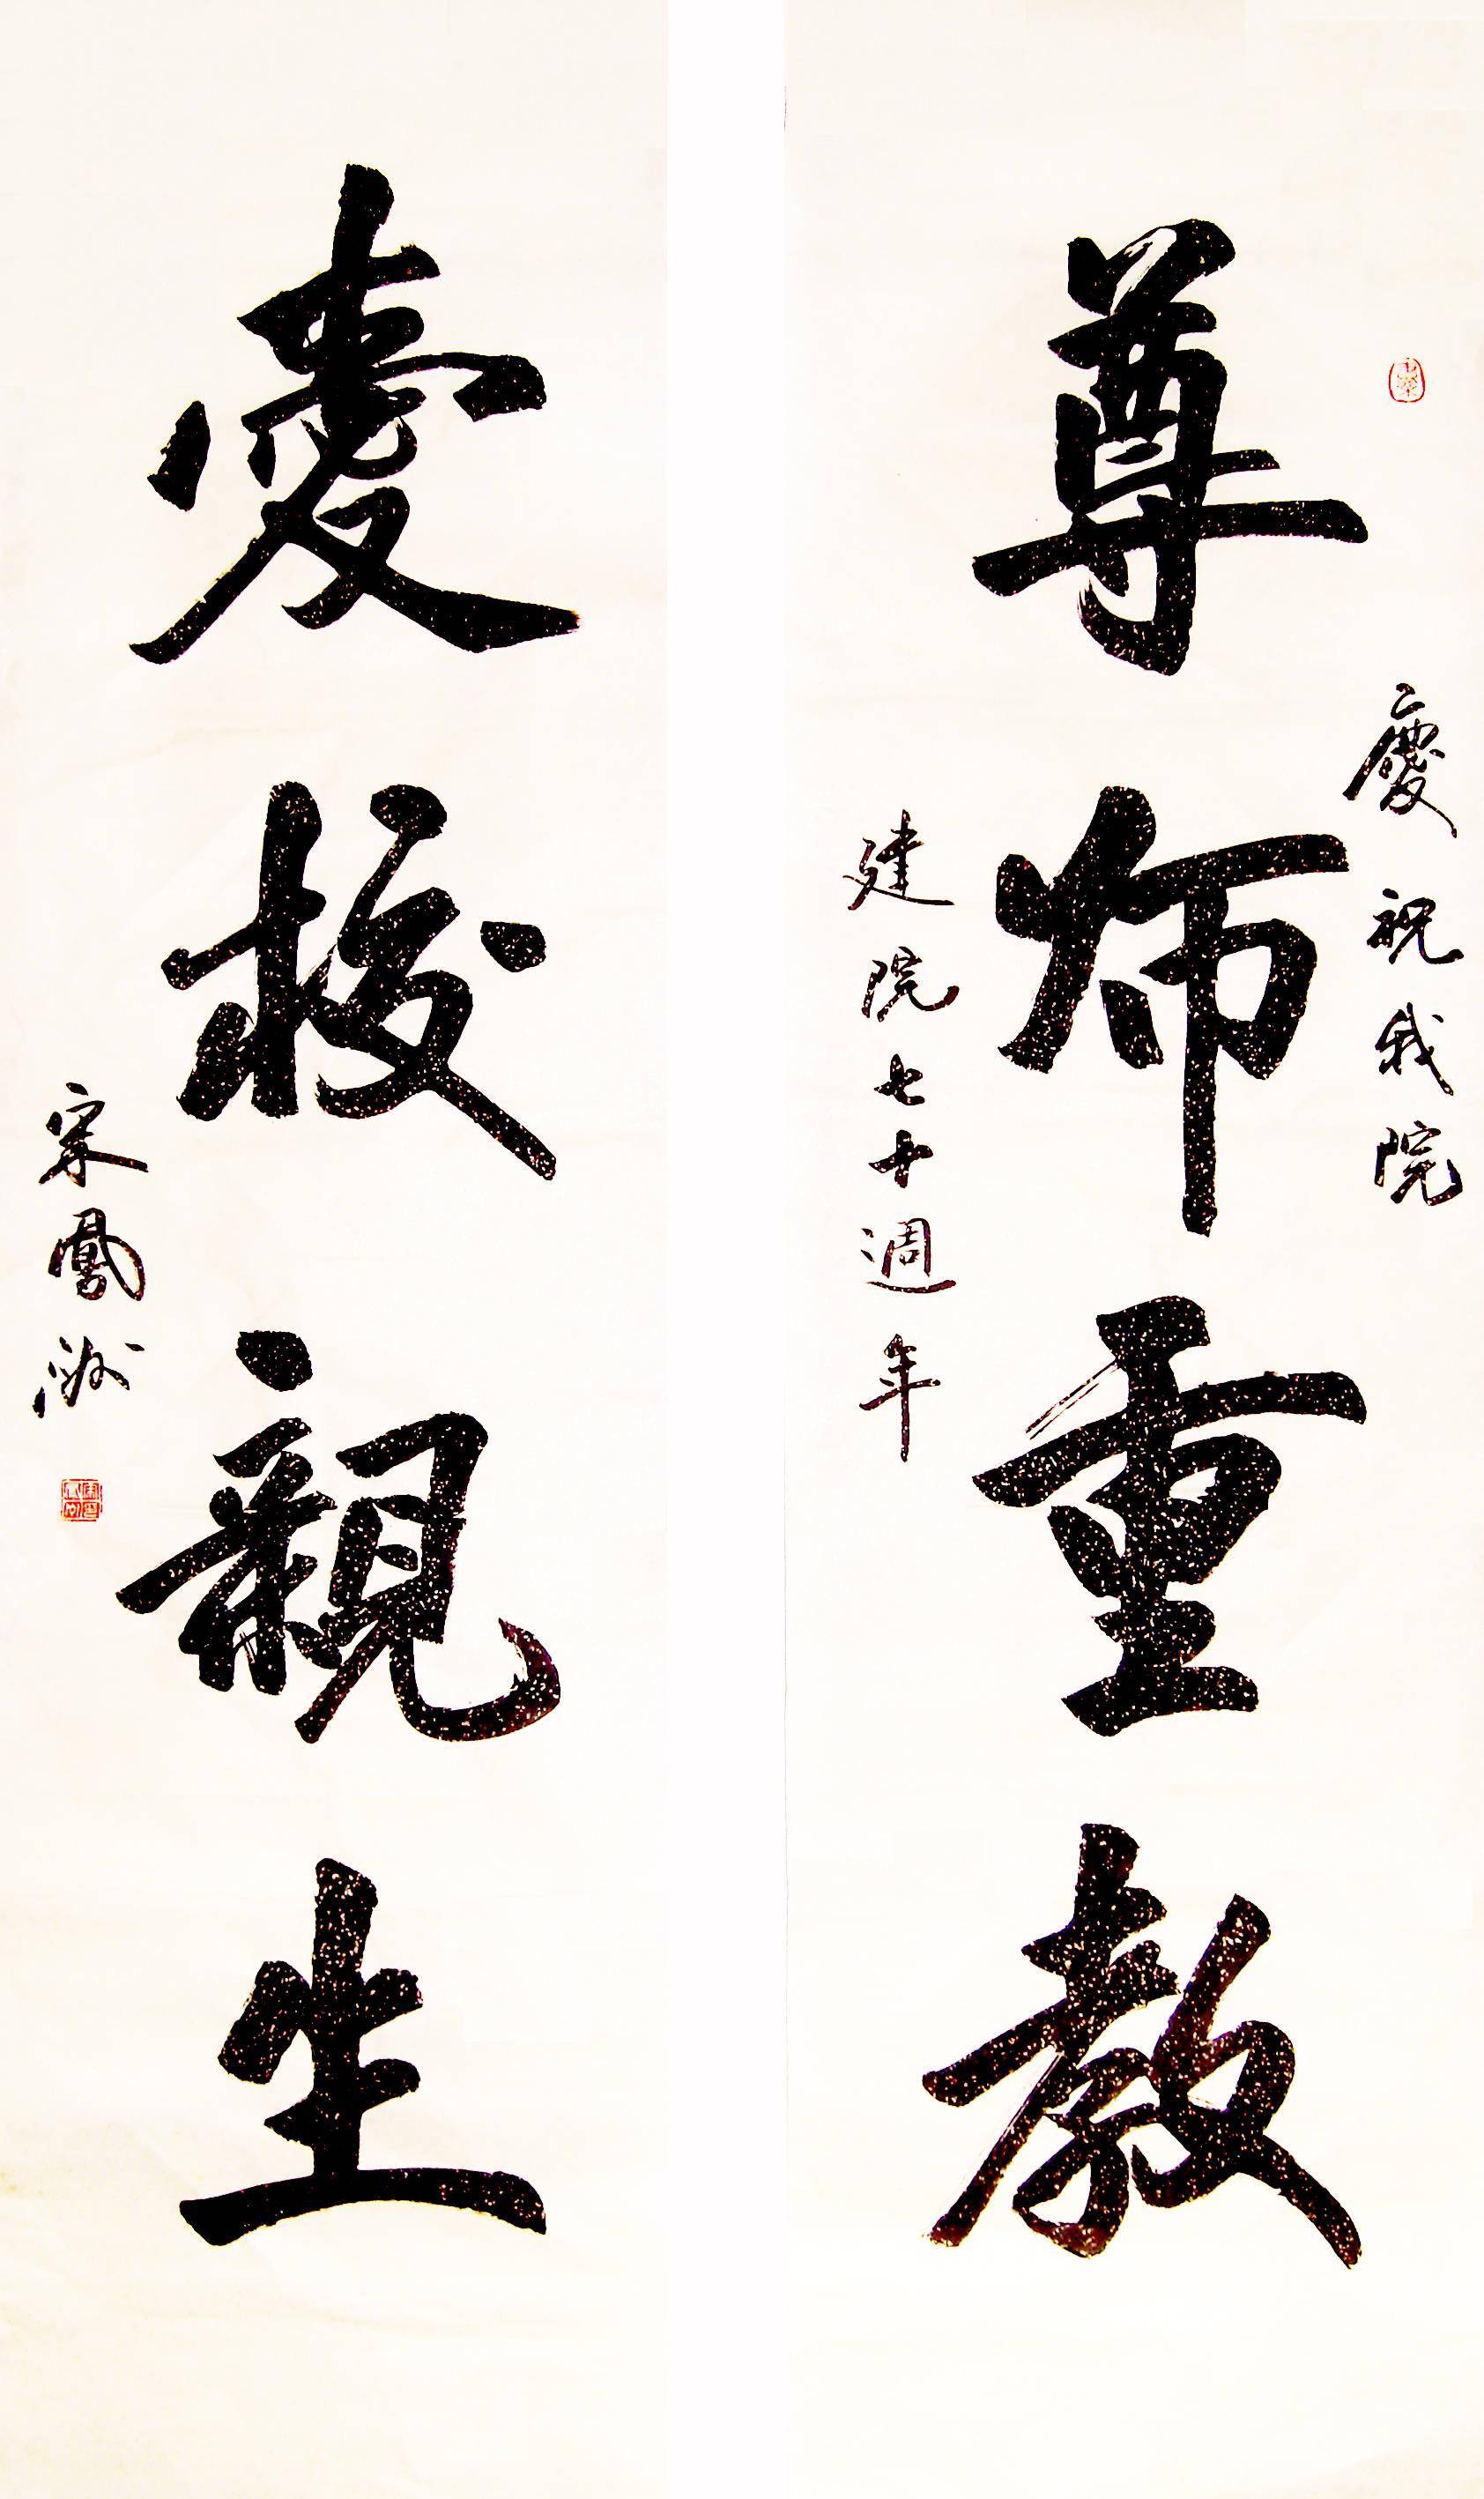 慶祝我院
尊師重教
建院七十週年
愛校親生
宋鳳洲